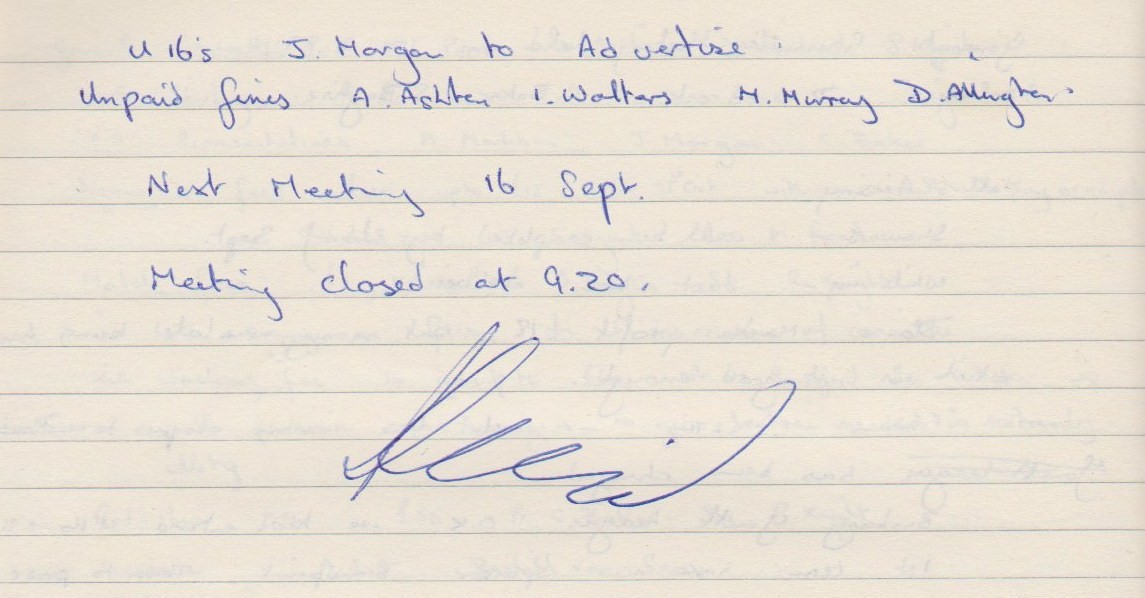 U 16's J. Morgan to Advertise.
Unpaid fines A. Ashten I. Walters M. Murray D.
Next Meeting 16 Sept.
Meeting closed at 9.20.